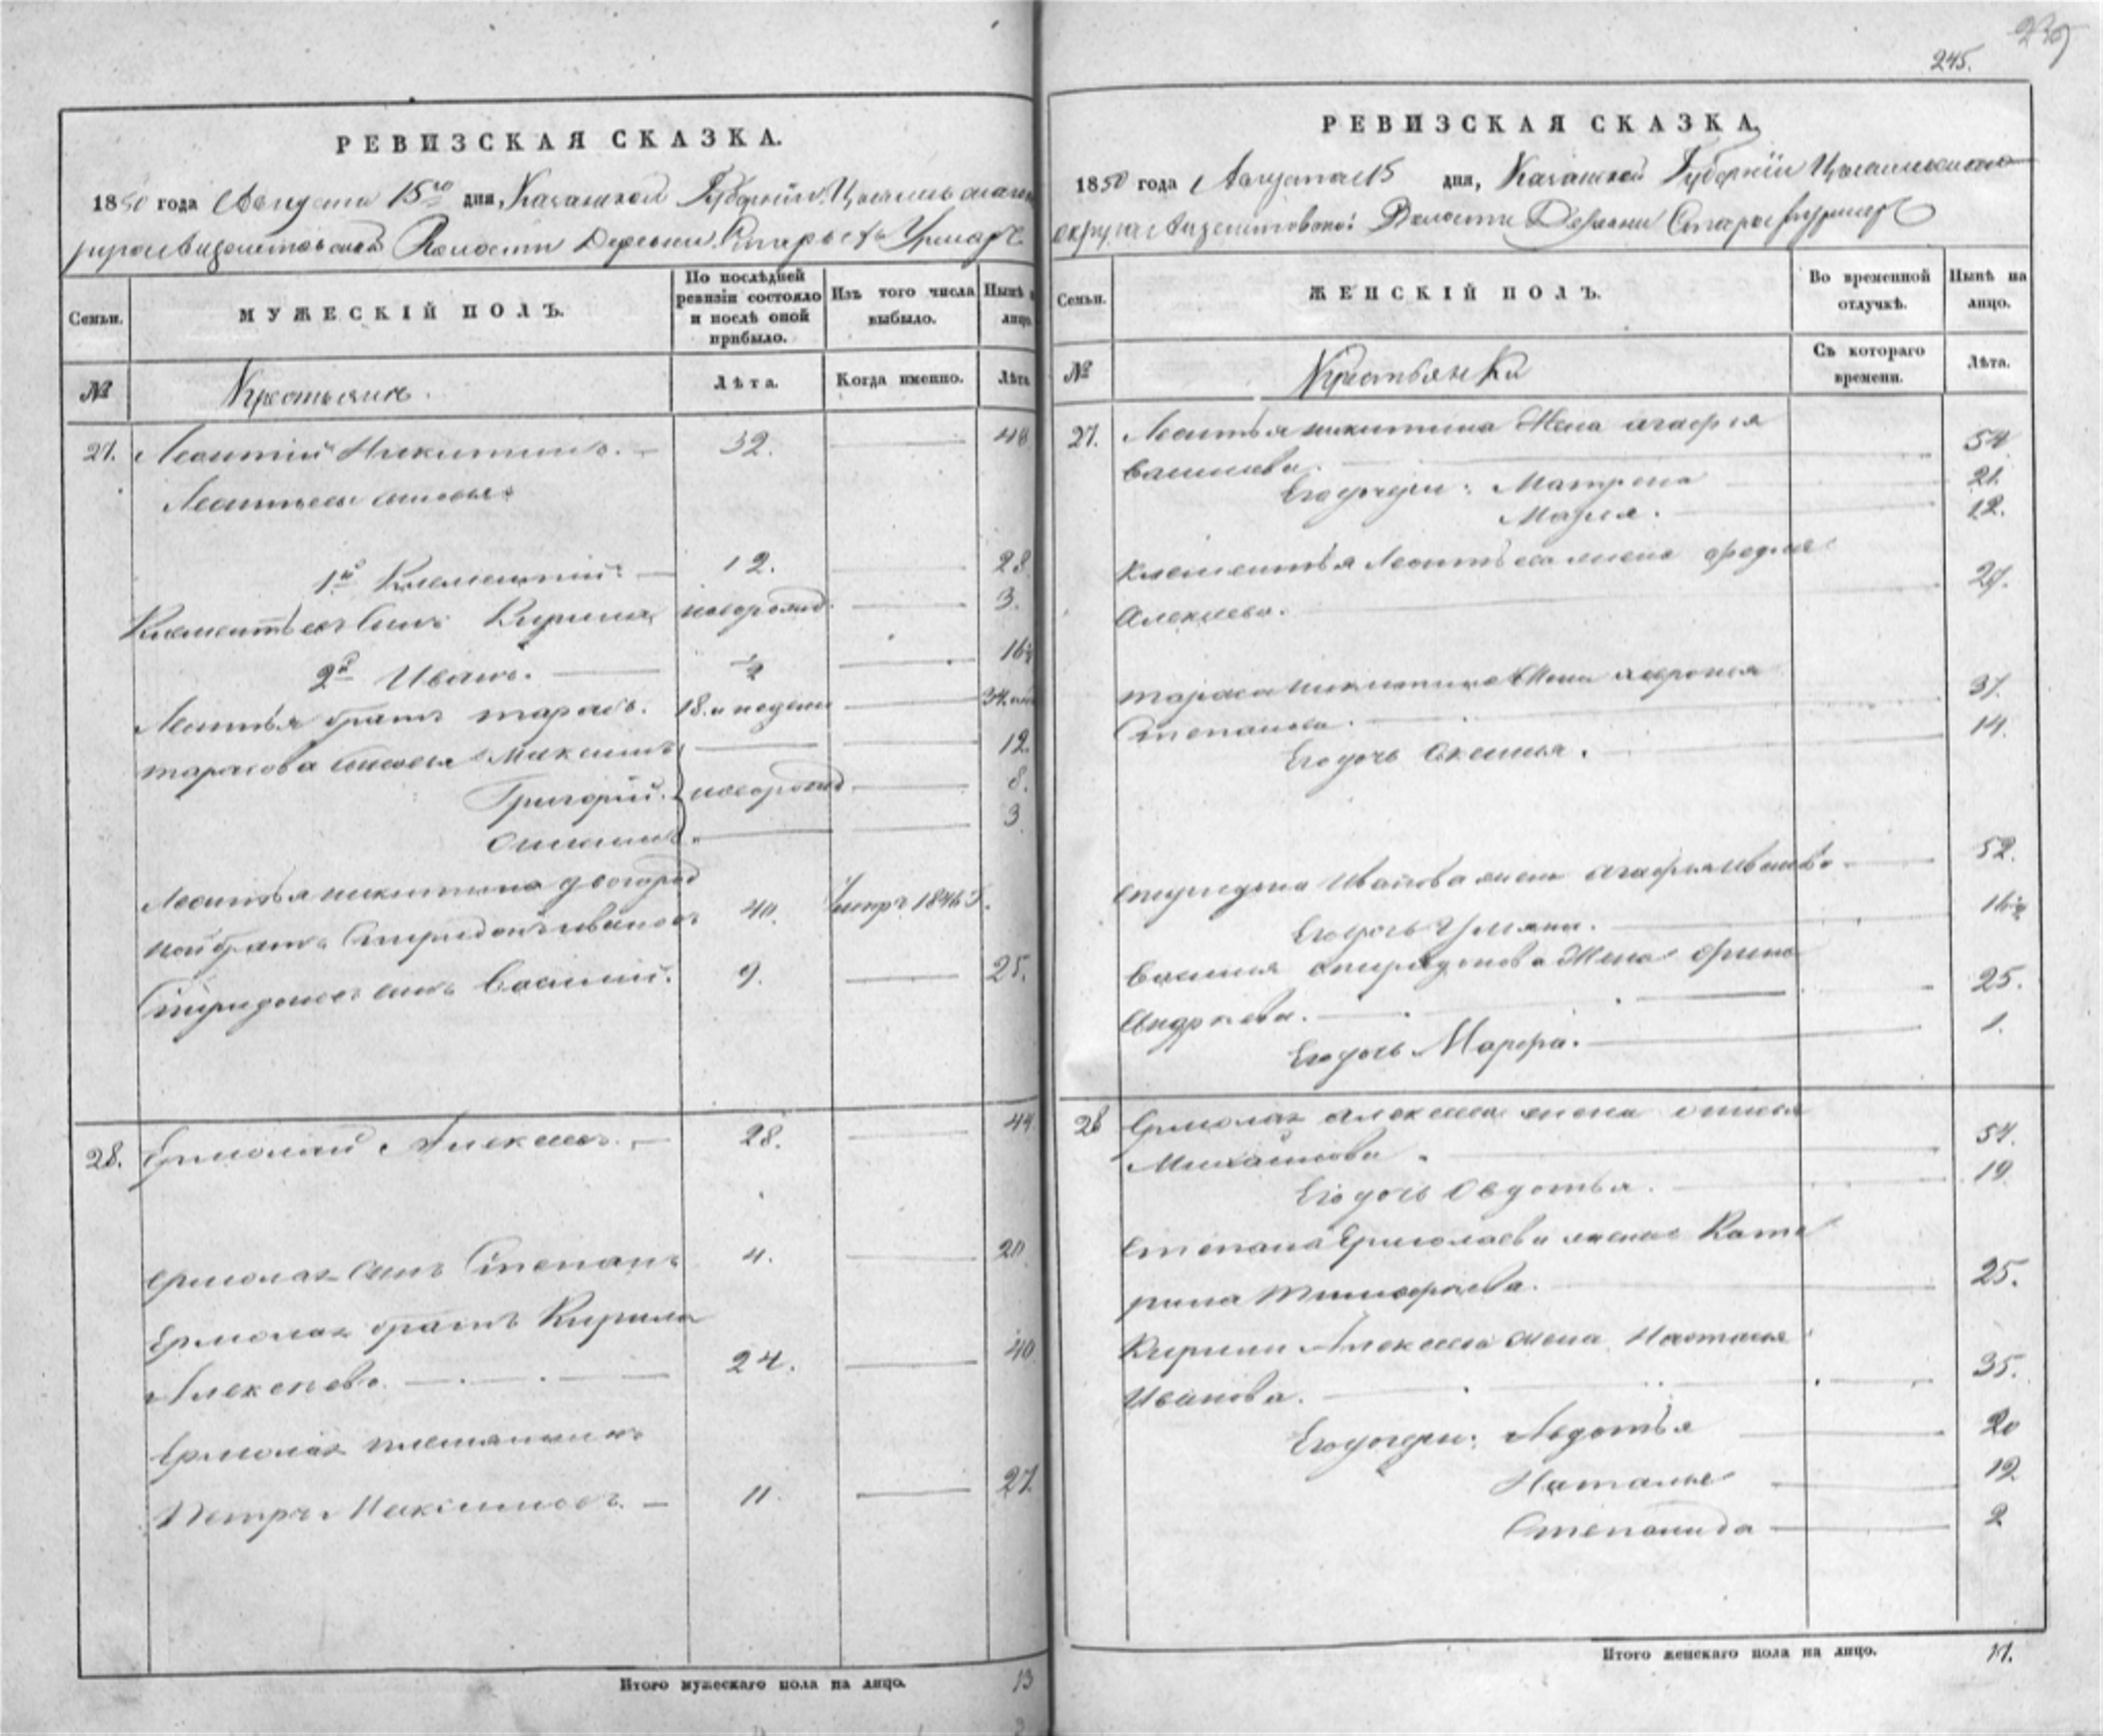 239
245.
РЕВИЗСКАЯ СКАЗКА.
1850 года Августа 15го дня, Казанской Губернiи
Волости Деревни Старыхъ Урмаръ
Семьи.
МУЖЕСКІЙ ПОЛЪ.
По послѣдней ревизіи состояло и послѣ оной прибыло.
Изъ того числа выбыло.
Нынѣ на лицо.
№
Крестьянъ.
Лѣта.
Когда именно.
Лѣта
27. Леонтій Никитинъ. 32. 48
Леонтьевы сыновья
1й Клементій 12. 28
Клементьевъ сынъ Кирила новорожд. 3.
2й Иванъ. ½ 16½
Леонтья братъ тарасъ. 18. и недели 34
тарасова сыновья Максимъ 12.
Григорій. новорожд 8.
3
Леонтья никитина двоюрод
ной братъ Спиридонъ ивановъ 40. умеръ 1846 г.
Спиридоновъ сынъ Василий. 9. 25.
28. Ермолай Алексеевъ. 28. 44
Ермолая сынъ Степанъ 4. 20
Ермолая братъ Кирила
Алексеевъ 24. 40
Ермолая племянникъ
Петръ Максимовъ. 11. 27
Итого мужескаго пола на лицо. 13
РЕВИЗСКАЯ СКАЗКА
1850 года Августа 15 дня, Казанской Губерніи
округа Волости Деревни Старыхъ Урмаръ
Семьи.
ЖЕНСКІЙ ПОЛЪ.
Во временной отлучкѣ.
Нынѣ на лицо.
№
Крестьянки
Съ котораго времени.
Лѣта.
27. Леонтья никитина Жена агафья
Васильева. 54
Его дочери: Матрена 21.
Марья. 12.
Клементья Леонтьева жена
Алексеева. 27.
тараса никитина Жена
Степанова. 37.
Его дочь Аксинья. 14.
спиридона Иванова жена агафья Иванова 52.
Его дочь Ульяна. 16½
Василья спиридонова Жена Орина
Андреева. 25.
Его дочь Марфа. 1.
28 Ермолая алексеева жена
Михайлова. 54.
Его дочь Овдотья. 19
степана Ермолаева жена Кате
рина тимофеева. 25.
Кирилы Алексеева жена Настасья
Иванова. 35.
Его дочери: Авдотья 20
Наталья 12.
Степанида 2
Итого женскаго пола на лицо. 17.